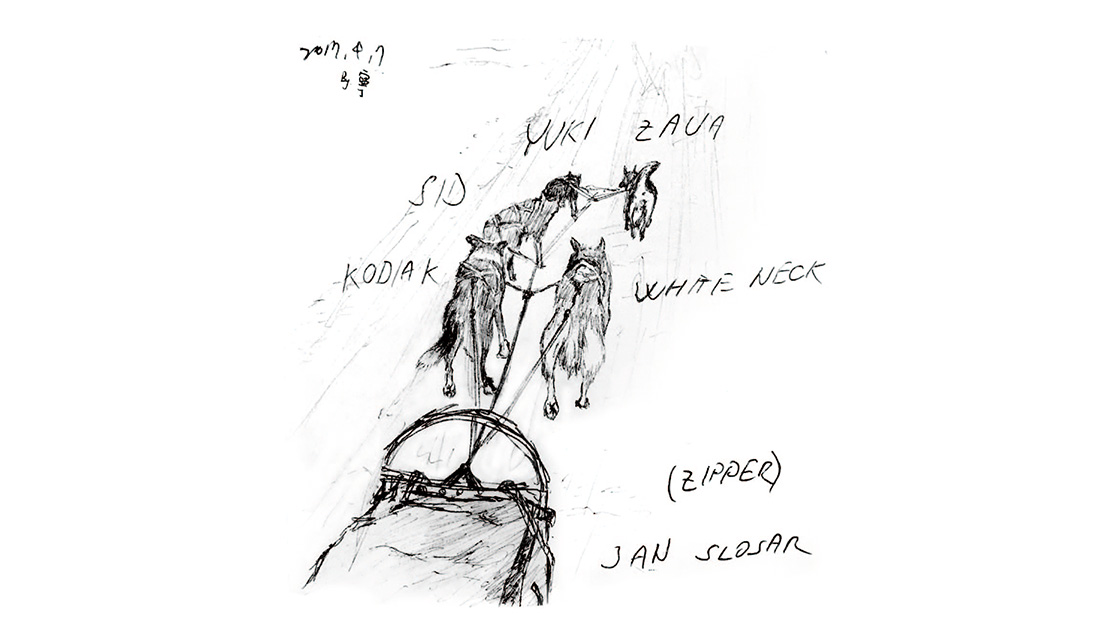 2017.4.7
By 寧
YUKI ZAUA
SID
KODIAK
WHITE NECK
(ZIPPER)
JAN SLOSAR